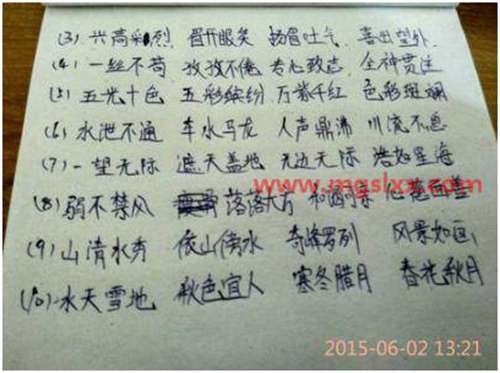 (3) 兴高彩烈 眉开眼笑 扬眉吐气 喜出望外
(4) 一丝不苟 孜孜不倦 专心致志 全神贯注
(5) 五光十色 五彩缤纷 万紫千红 色彩斑斓
(6) 水泄不通 车水马龙 人声鼎沸 川流不息
(7) 一望无际 遮天盖地 无边无际 浩如星海
www.mgslxx.com
(8) 弱不禁风 落落大方
(9) 山清水秀 依山傍水 奇峰罗列 风景如画
(10) 水天雪地 秋色宜人 寒冬腊月 春花秋月
2015-06-02 13:21